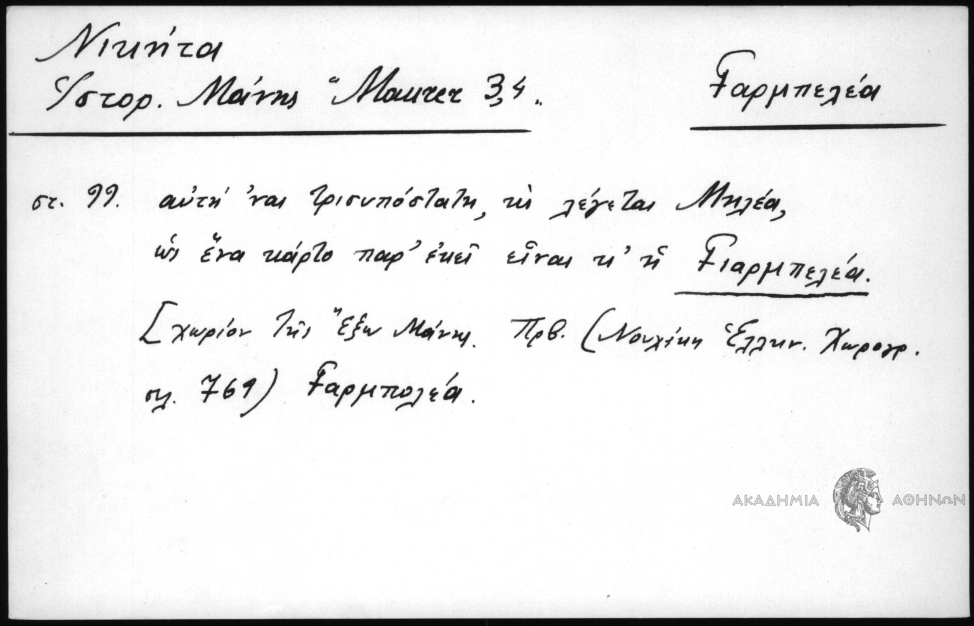 Νικήτα
Ἱστορ. Μάνης "Maurer 3,4.
Γαρμπελέα
στ. 99. αὐτή 'ναι τρισυπόστατη, τὴ λέγεται Μηλέα,
ὡς ἕνα κάρτο παρ' ἐκεῖ εἶναι κ' ἡ Γιαρμπελέα.
[χωρίον τῆς Ἔξω Μάνης. Πρβ. (Νουχάκη Ἑλλην. Χωρογρ.
σελ. 769) Γαρμπολέά.
ΑΚΑΔΗΜΙΑ ΑΘΗΝΩΝ